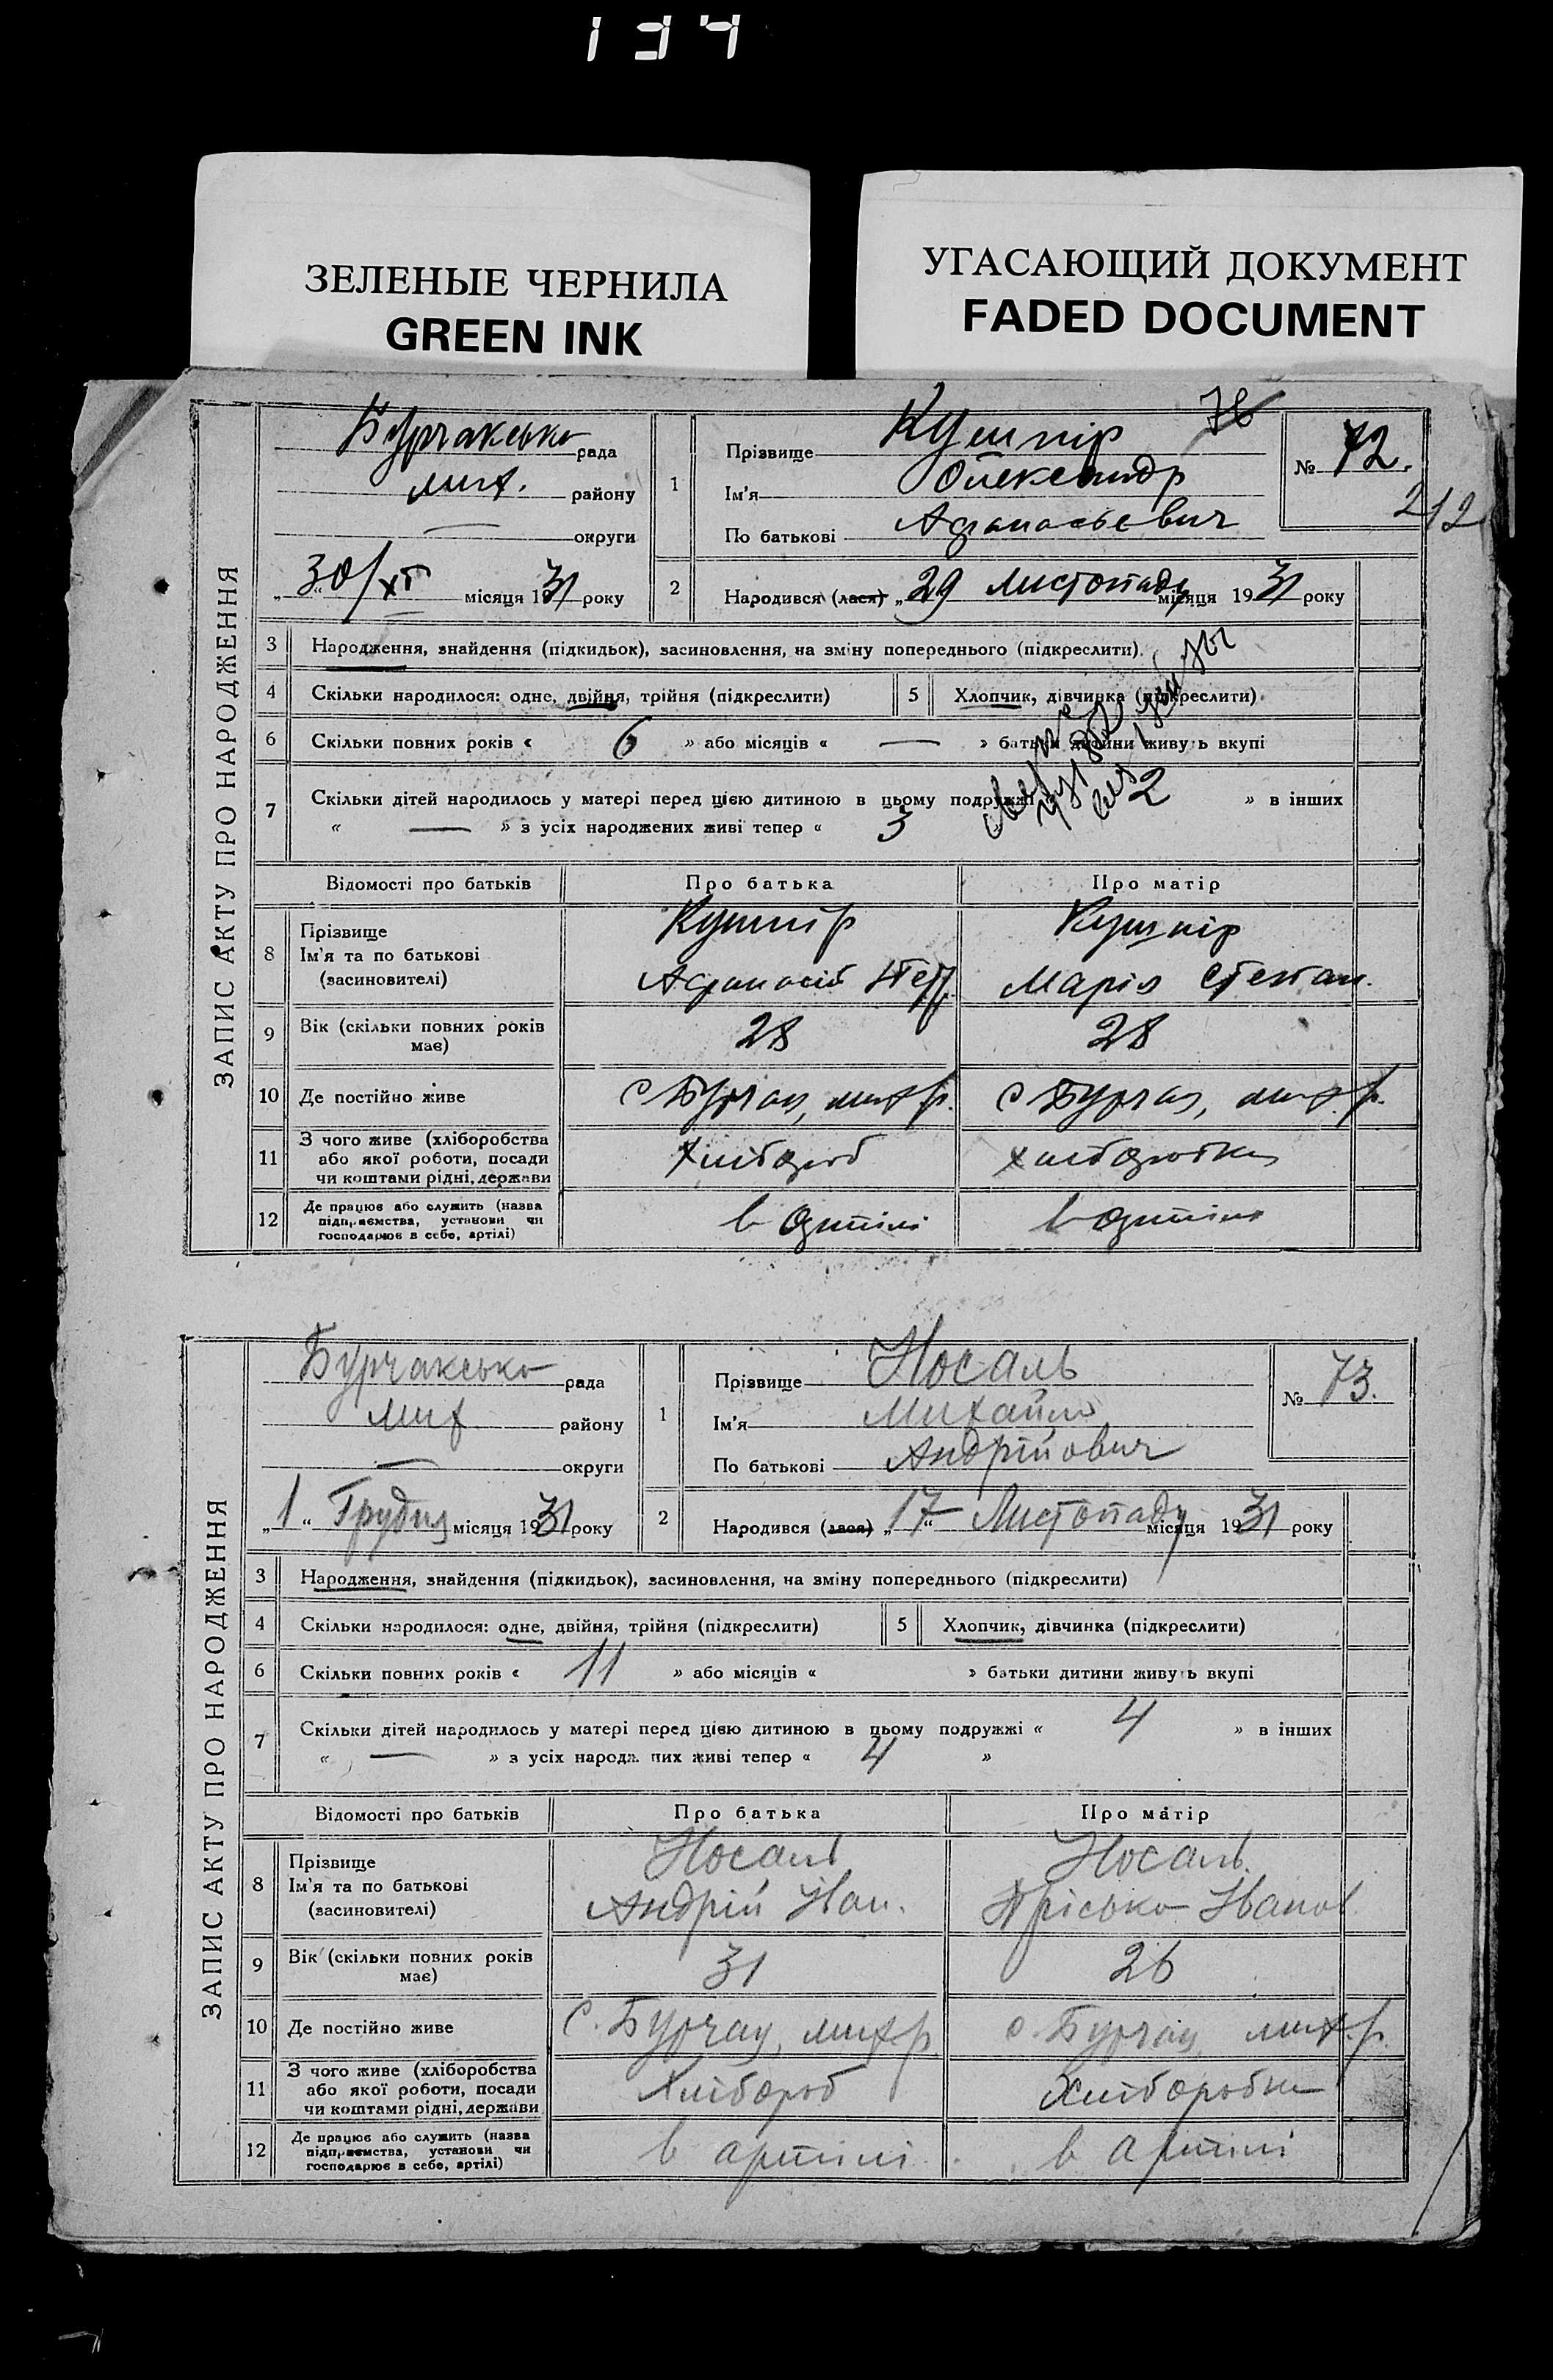 134
ЗЕЛЕНЫЕ ЧЕРНИЛА
GREEN INK
УГАСАЮЩИЙ ДОКУМЕНТ
FADED DOCUMENT
ЗАПИС АКТУ ПРО НАРОДЖЕННЯ
Бурчакська рада
мих. району
— округи
„30/XI“ місяця 1931 року
1 Прізвище Кушнір
Ім'я Олександр
По батькові Афанасьевич
№ 72.
212
2 Народився (лася) „29 Листопаду місяця 1931 року
3 Народження, знайдення (підкидьок), засиновлення, на зміну попереднього (підкреслити).
4 Скільки народилося: одне, двійня, трійня (підкреслити) 5 Хлопчик, дівчинка (підкреслити)
6 Скільки повних років « 6 » або місяців « — » батьки дитини живуть вкупі
7 Скільки дітей народилось у матері перед цією дитиною в цьому подружжі 2 » в інших
« — » з усіх народжених живі тепер « 3
Відомості про батьків Про батька Про матір
8 Прізвище Ім'я та по батькові (засиновителі) Кушнір Кушнір
Афанасій Мария Степан.
9 Вік (скільки повних років має) 28 28
10 Де постійно живе с Бурчак, мих р. с Бурчак, мих. р.
11 З чого живе (хліборобства або якої роботи, посади чи коштами рідні, держави Хлібороб хлiборобка
12 Де працює або служить (назва підприємства, установи чи господарює в себе, артілі) в артілі в артілі
ЗАПИС АКТУ ПРО НАРОДЖЕННЯ
Бурчакська рада
мих району
— округи
„1“ Грудня місяця 1931 року
1 Прізвище Носаль
Ім'я Михайло
По батькові Андрійович
№ 73.
2 Народився (лася) „17“ Листопаду місяця 1931 року
3 Народження, знайдення (підкидьок), засиновлення, на зміну попереднього (підкреслити)
4 Скільки народилося: одне, двійня, трійня (підкреслити) 5 Хлопчик, дівчинка (підкреслити)
6 Скільки повних років « 11 » або місяців « » батьки дитини живуть вкупі
7 Скільки дітей народилось у матері перед цією дитиною в цьому подружжі « 4 » в інших
« — » з усіх народжених живі тепер « 4 »
Відомості про батьків Про батька Про матір
8 Прізвище Ім'я та по батькові (засиновителі) Носаль Носаль
Андрій Іван. Пріська Іванов.
9 Вік (скільки повних років має) 31 26
10 Де постійно живе с. Бурчак, мих р. с. Бурчак, мих. р.
11 З чого живе (хліборобства або якої роботи, посади чи коштами рідні, держави Хлібороб Хліборобка
12 Де працює або служить (назва підприємства, установи чи господарює в себе, артілі) в артілі в артілі